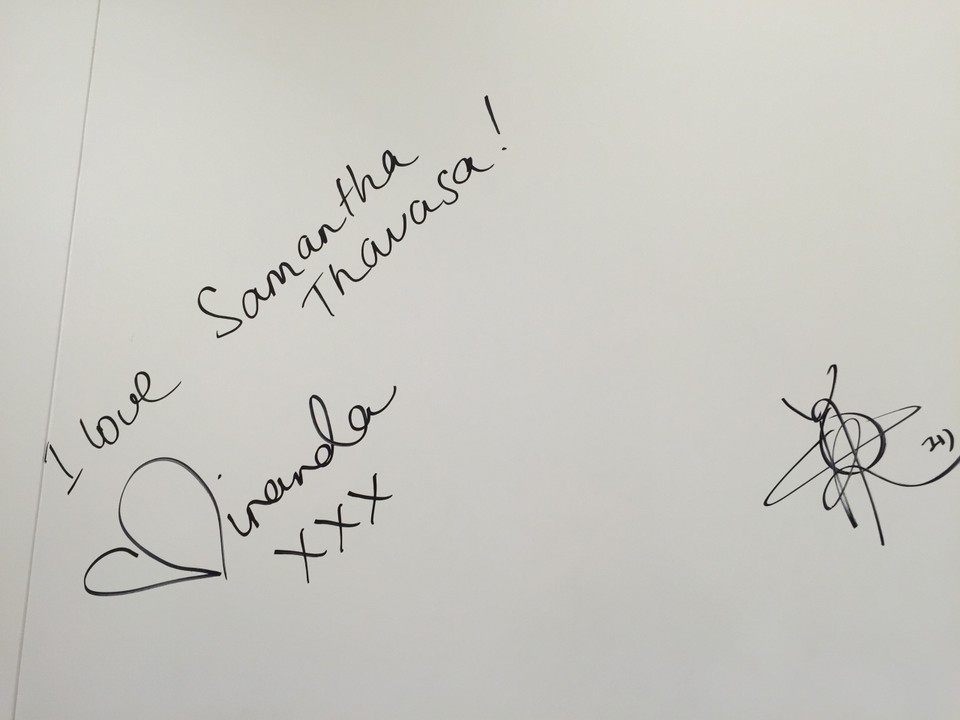 I love Samantha
Thavasa!
Miranda
xxx